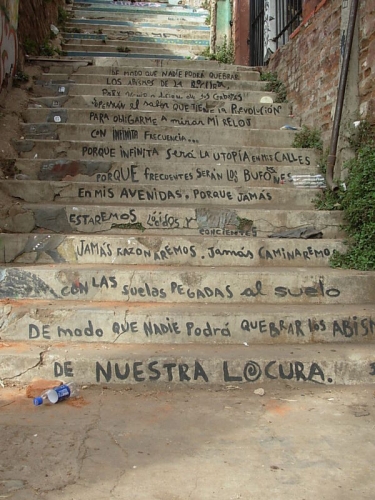 DE MODO QUE NADIE PODRÁ QUEBRAR
LOS ABISMOS DE LA
PARA
EL SABOR QUE TIENE la REVOLUCIÓN
PARA OBLIGARME A MIRAR MI RELOJ
CON INFINITA FRECUENCIA...
PORQUE INFINITA SERÁ LA UTOPIA EN MIS CALLES
PORQUE FRECUENTES SERÁN LOS BUFONES
EN MIS AVENIDAS. PORQUE JAMÁS
ESTAREMOS LÚCIDOS Y
CONCIENTES
JAMÁS RAZONAREMOS. JAMÁS CAMINAREMOS
CON LAS SUELAS PEGADAS al SUELO
DE MODO QUE NADIE PODRÁ QUEBRAR LOS ABISM
DE NUESTRA LOCURA.